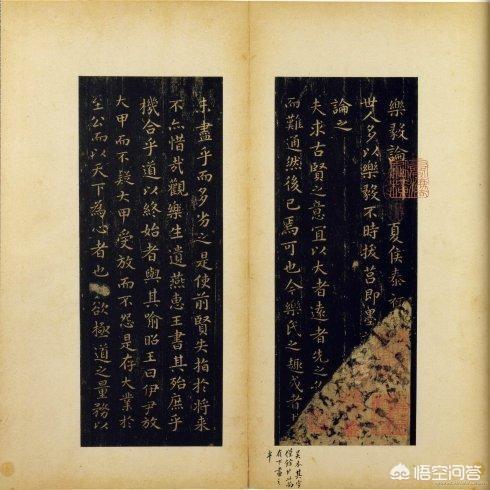 樂毅論 夏侯泰
世人多以樂毅不時拔莒即墨
論之
夫求古賢之意宜以大者遠者先之
而難通然後已焉可也今樂氏之趣或者
未盡乎而多劣之是使前賢失指於將來
不亦惜哉觀樂生遺燕惠王書其殆庶乎
機合乎道以終始者與其喻昭王曰伊尹放
大甲而不疑大甲受放而不怨是存大業於
至公而以天下為心者也 欲極道之量務以
吳本其字
悟空问答